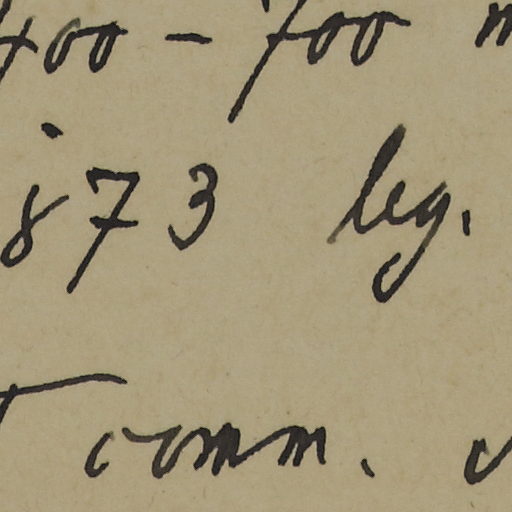 400 – 700 m
873 leg.
comm.